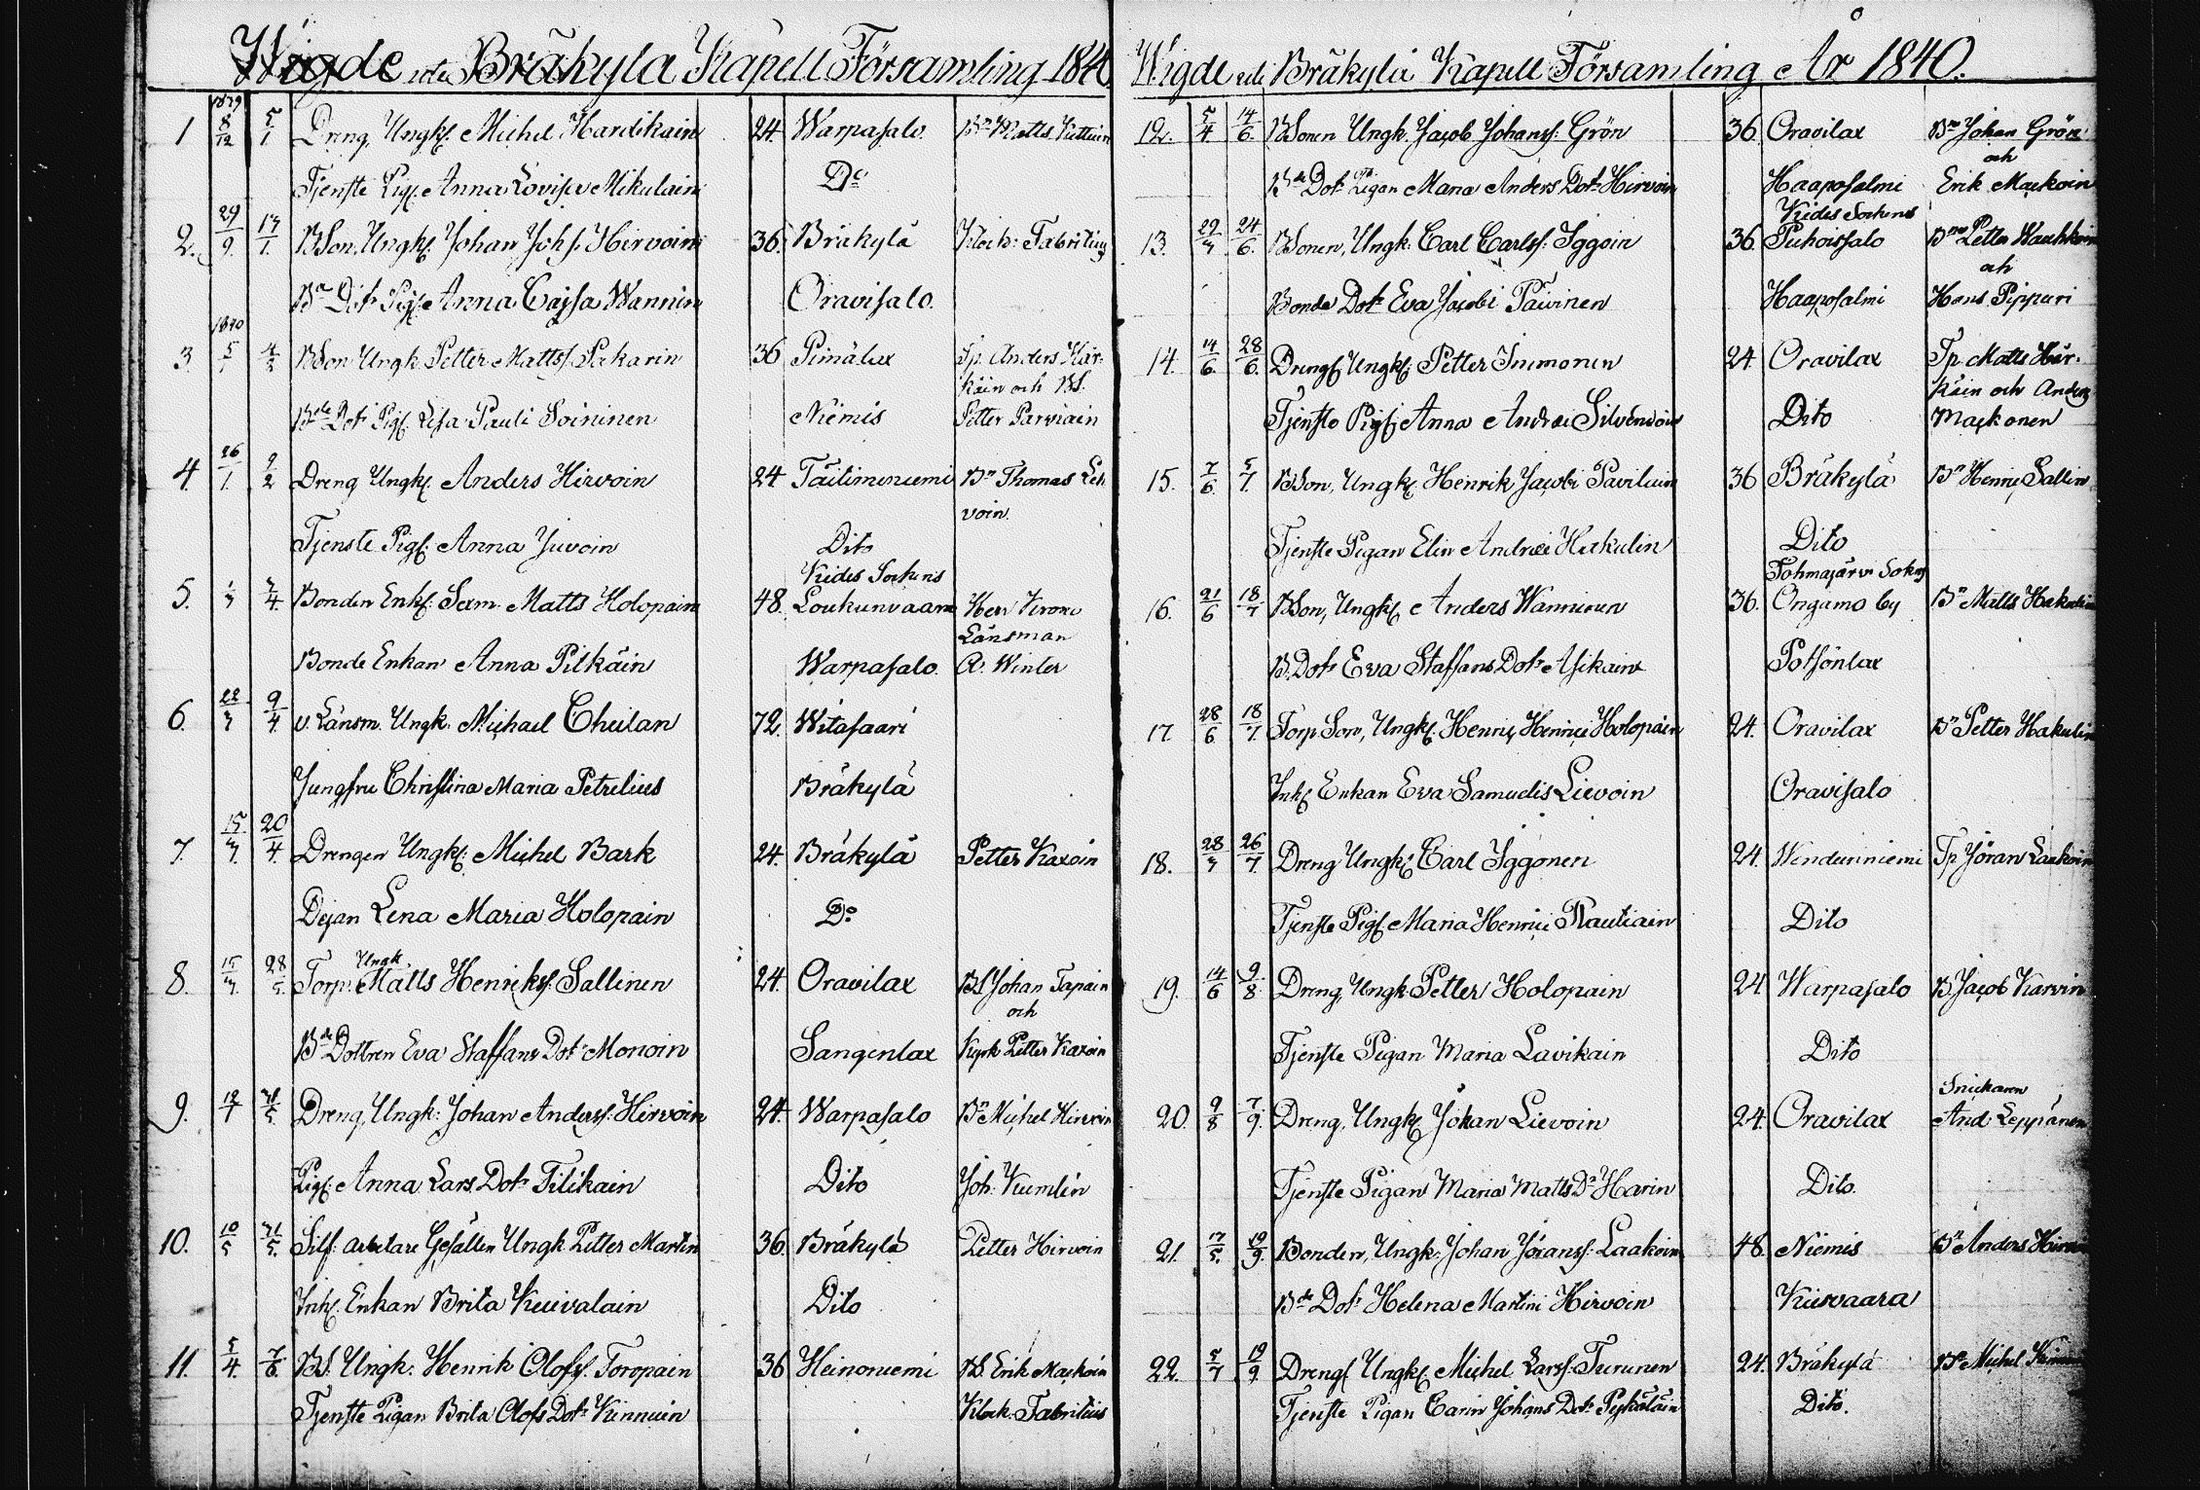 Wigde uti Bräkylä Kapell Församling 1840
1839
1 8/12 5/1 Dreng, Ungk: Michel Hardikain 24. Warpasalo. Bn Matts
Tjenste Pig. Anna Lovisa Mikulain Do
2. 29/9. 17/1. BSon, Ungk: Johan Johs: Hirvoin 36. Bräkylä Klock: Fabritius
Bn Dotr Pig. Anna Cajsa Wannin Oravisalo.
1840
3 BSon Ungk Petter Mattss: Pekarin 36 Pimälax Tp. Anders Här-
käin och BS.
Bde Dotr Pig. Lisa Pauli Soininen Niemis Petter Parviain
4. 26/1. 9/2 Dreng Ungk: Anders Hirvoin 24 Täitimeniemi Bn Thomas Leh
voin.
Tjenste Pig: Anna Juvoin Dito
Kides Sockens
5. Bonden Enkl: Sam. Matts Holopain 48. Loukunvaara Herr Krono
Länsman
Bonde Enkan Anna Pitkäin Warpasalo. A. Winter
6. 22/3 9/4. v. Länsm. Ungk. Michael Theilan 72. Witasaari
Jungfru Christina Maria Petrelius Bräkylä
7. 15/3. 20/4. Drengen Ungk: Michel Bark 24. Bräkylä Petter Kaxoin
Dejan Lena Maria Holopain Do
Ungk.
8. 15/3. 28/5. Torp. Matts Henrikss: Sallinen 24. Oravilax BS Johan Tapain
och
Bde Dottren Eva Staffans Dotr Monoin Sangenlax Kyrk Petter Kaxoin
9. 12/7 31/5. Dreng, Ungk: Johan Anderss: Hirvoin 24. Warpasalo Bn Michel Hirvoin
Pig: Anna Lars Dotr Tilikain Dito Joh: Kumlin
10. 10/5 31/5. Silf: arbetare Gesällen Ungk Petter Martin 36. Bräkylä Petter Hirvoin
Inh: Enkan Brita Kuivalain Dito
11. 5/4. 7/6. BS. Ungk: Henrik Olofss: Toropain 36 Heinoniemi BS. Erik Mackoin
Tjenste Pigan Brita Olofs Dotr Kinnuin Klock: Fabritius
Wigde uti Bräkylä Kapell Församling År 1840.
12. 5/4 14/6. BSonen Ungk. Jacob Johanss: Grön 36. Oravilax Bn Johan Grön
och
Bde Dotr Pigan Maria Anders Dotr Hirvoin Haaposalmi Erik Mackoin
Kides Sockens
13. 29/3 24/6. BSonen, Ungk: Carl Carlss: Iggoin 36. Puhoissalo Bne Petter Wauhkoin
och
Bonde Dotr Eva Jacobi Päivinen Haaposalmi Hans Pippuri
14. 14/6. 28/6. Dreng Ungk: Petter Immonen 24. Oravilax Tp. Matts Här-
käin och Anders
Tjenste Pig: Anna Andrei Silvendoin Dito Mackonen
15. 7/6. 5/7. BSon, Ungk: Henrik Jacobi Pavilain 36 Bräkylä Bn Henric Sallin
Tjenste Pigan Elin Andreæ Hakulin Dito
Tohmajärvi Sokn
16. 21/6 18/7 BSon, Ungk: Anders Wanninen 36. Ongamo by Bn Matts Hakulin
B. Dotr Eva Staffans Dotr Asikain Potsönlax
17. 28/6. 18/7. Torp Son, Ungk: Henric Henrici Holopäin 24. Oravilax Bn Petter Hakulin
Inh: Enkan Eva Samuelis Lievoin Oravisalo
18. 28/3 26/7. Dreng Ungk: Carl Iggonen 24. Wenduriniemi Tp Jöran Laakoin
Tjenste Pig: Maria Henrici Rautiain Dito
19. 14/6 9/8. Dreng, Ungk Petter Holopain 24 Warpasalo B. Jacob Karvin
Tjenste Pigan Maria Lavikain Dito
Snickaren
20. 9/8 7/9. Dreng, Ungk: Johan Lievoin 24. Oravilax And: Leppänen
Tjenste Pigan Maria Matts Dr Harin Dito.
21. 17/5. 19/9. Bonden, Ungk: Johan Jöranss: Laakoin 48. Niemis Bn Anders Hirvoin
Bde Dotr Helena Martini Hirvoin Kiesvaara
22. 5/7 19/9 Dreng Ungk: Michel Larss: Turunen 24. Bräkylä Bn Michel
Tjenste Pigan Carin Johans Dotr Pyhäläin Dito.